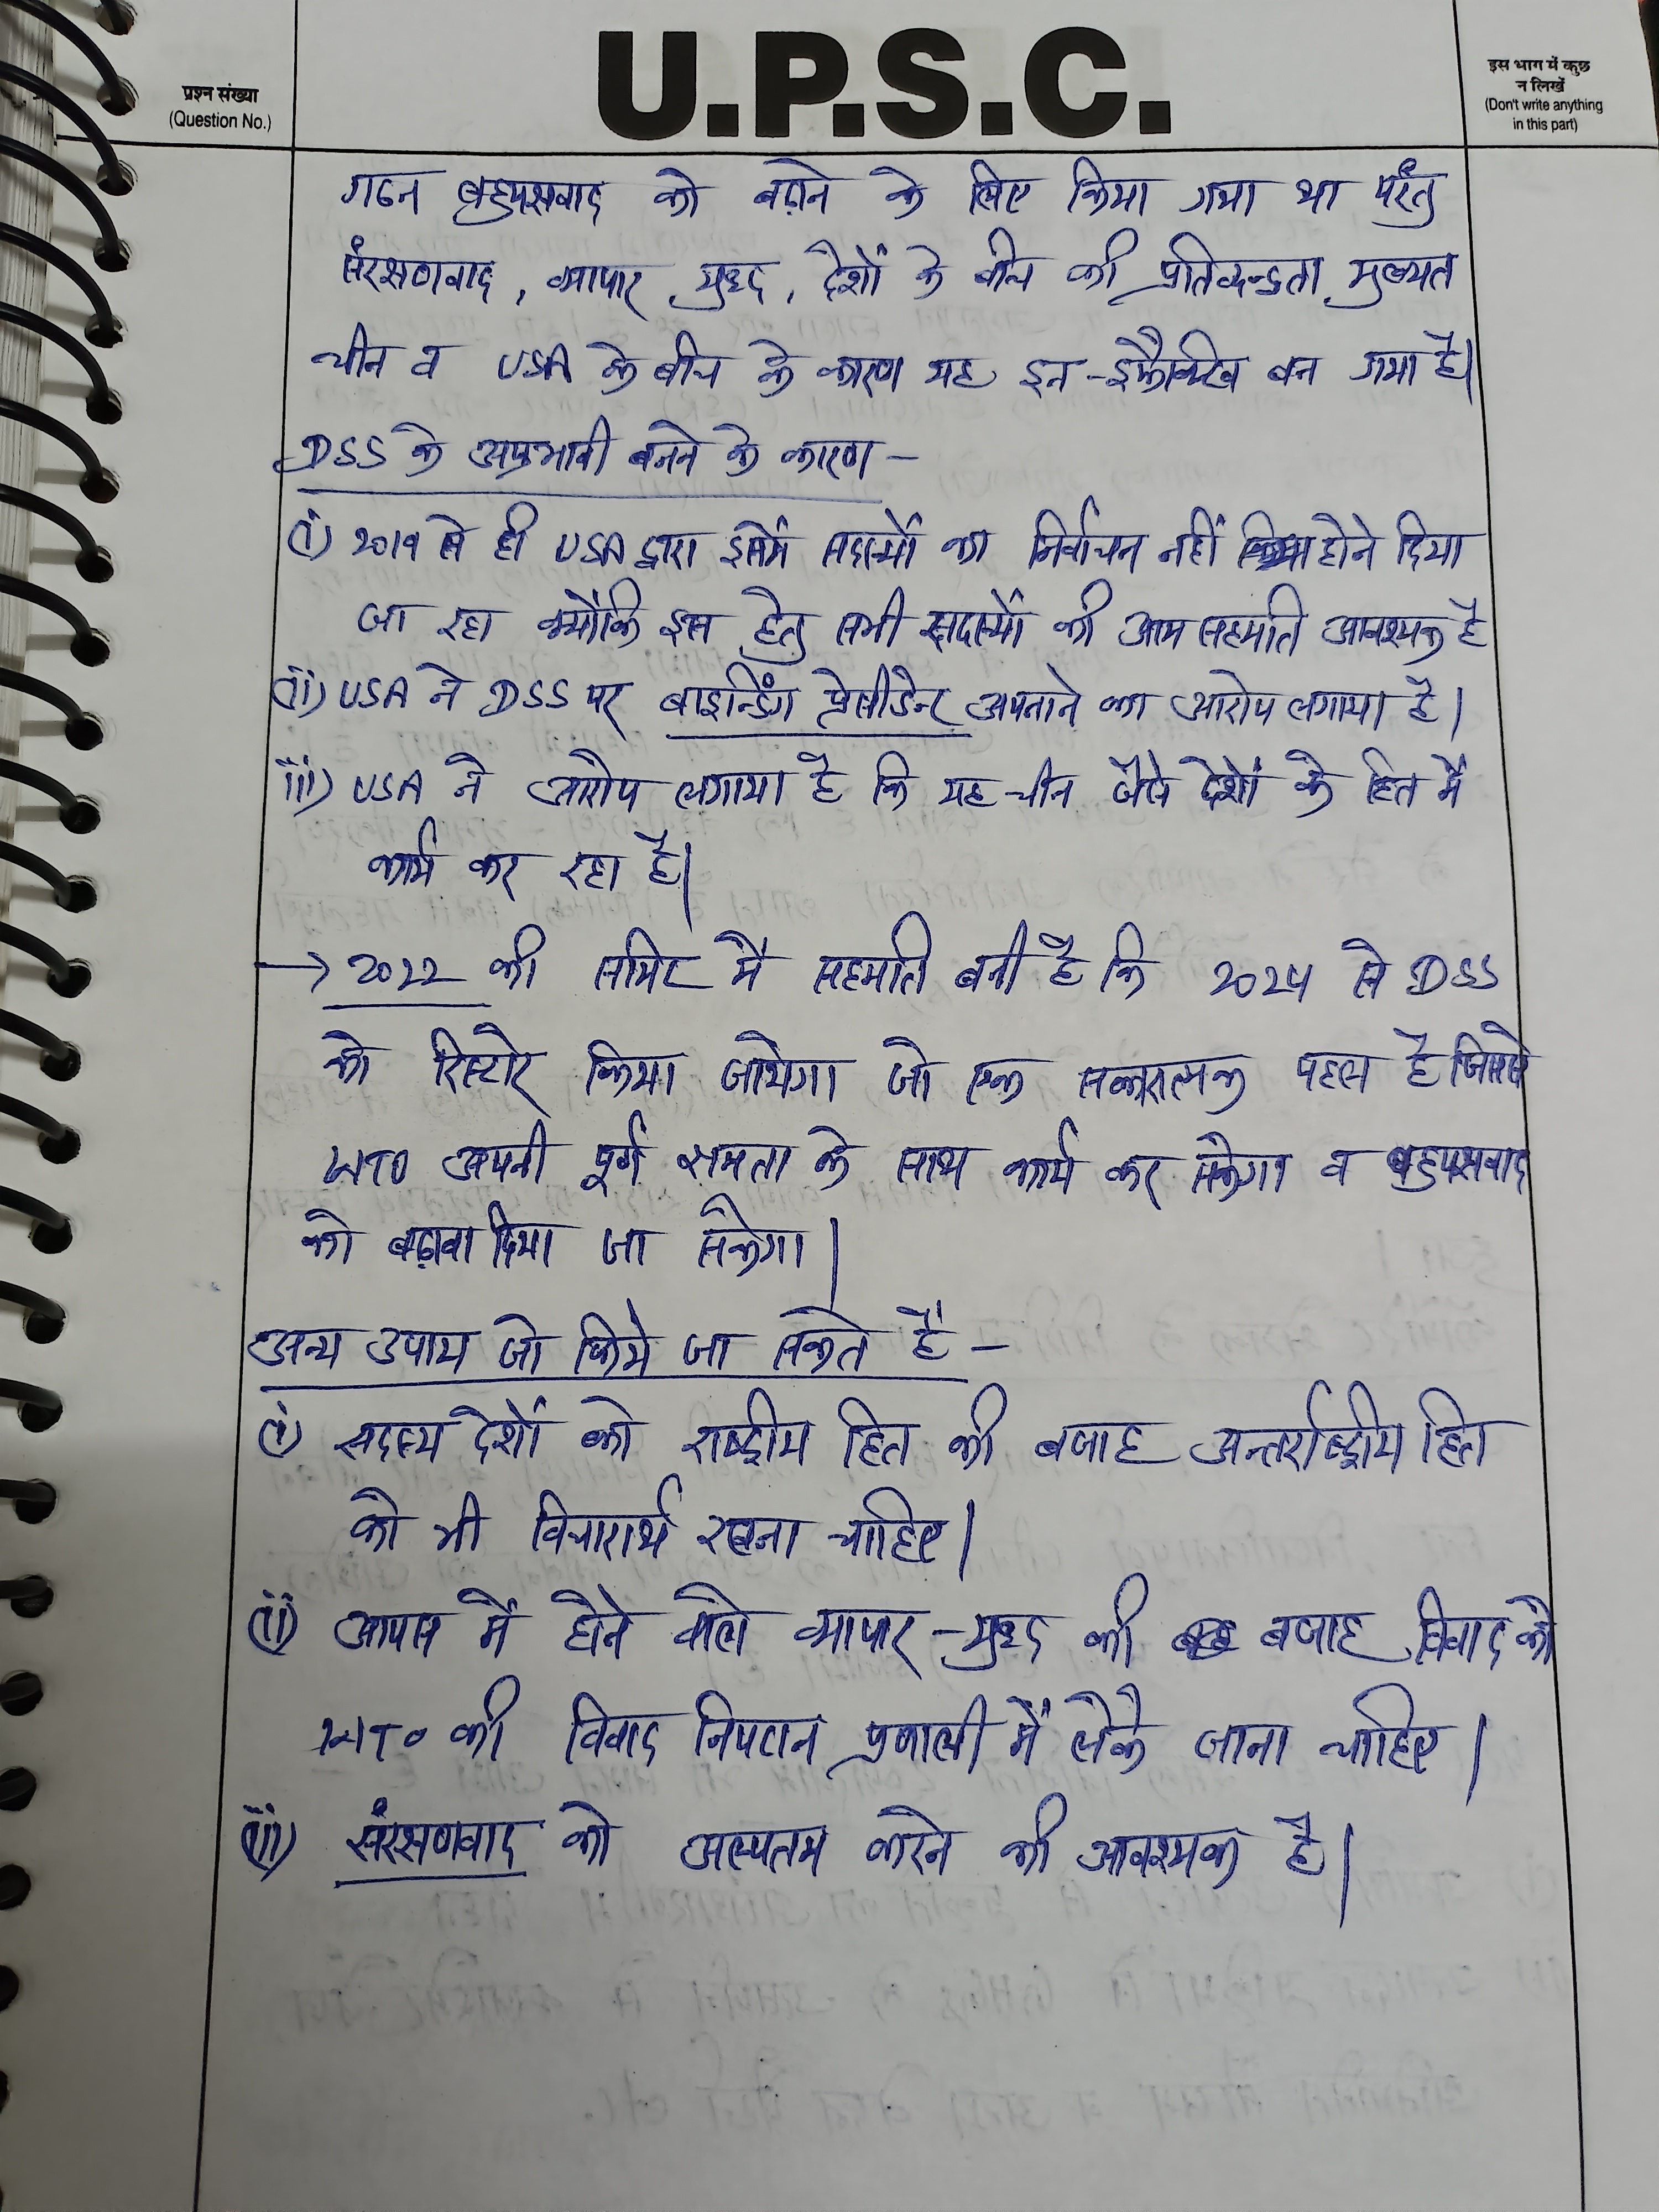 प्रश्न संख्या
(Question No.)
U.P.S.C.
इस भाग में कुछ
न लिखें
(Don't write anything
in this part)
गठन बहुपक्षवाद को बढ़ाने के लिए किया गया था परंतु
संरक्षणवाद, व्यापार युध्द, देशों के बीच की प्रतिद्वन्द्वता मुख्यत
चीन व USA के बीच के कारण यह इन-इफैक्टिव बन गया है।
DSS के अप्रभावी बनने के कारण -
(i) 2019 से ही USA द्वारा इसमें सदस्यों का निर्वाचन नहीं होने दिया
जा रहा क्योंकि इस हेतु सभी सदस्यों की आम सहमति आवश्यक है
(ii) USA ने DSS पर बाइन्डिंग प्रेसीडेन्ट अपनाने का आरोप लगाया है।
iii) USA ने आरोप लगाया है कि यह चीन जैसे देशों के हित में
कार्य कर रहा है।
→ 2022 की समिट में सहमति बनी है कि 2024 से DSS
को रिस्टोर किया जायेगा जो एक सकारात्मक पहल है जिससे
WTO अपनी पूर्ण क्षमता के साथ कार्य कर सकेगा व बहुपक्षवाद
को बढ़ावा दिया जा सकेगा।
अन्य उपाय जो किये जा सकते है -
(i) सदस्य देशों को राष्ट्रीय हित की बजाह अन्तर्राष्ट्रीय हित
को भी विचारार्थ रखना चाहिए।
(ii) आपस में होने वाले व्यापार-युध्द की बजाह विवाद को
WTO की विवाद निपटान प्रणाली में लेके जाना चाहिए।
(iii) संरक्षणवाद को अल्पतम करने की आवश्यक है।